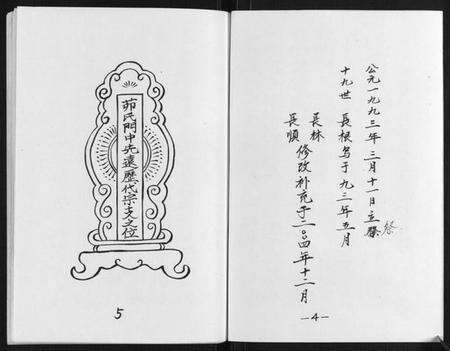 公元一九九三年三月十一日立
十九世 長根写于九三年五月
長林
長順 修改补充于二〇〇四年十二月
—4—
茆氏門中先遠歷代宗支之位
5